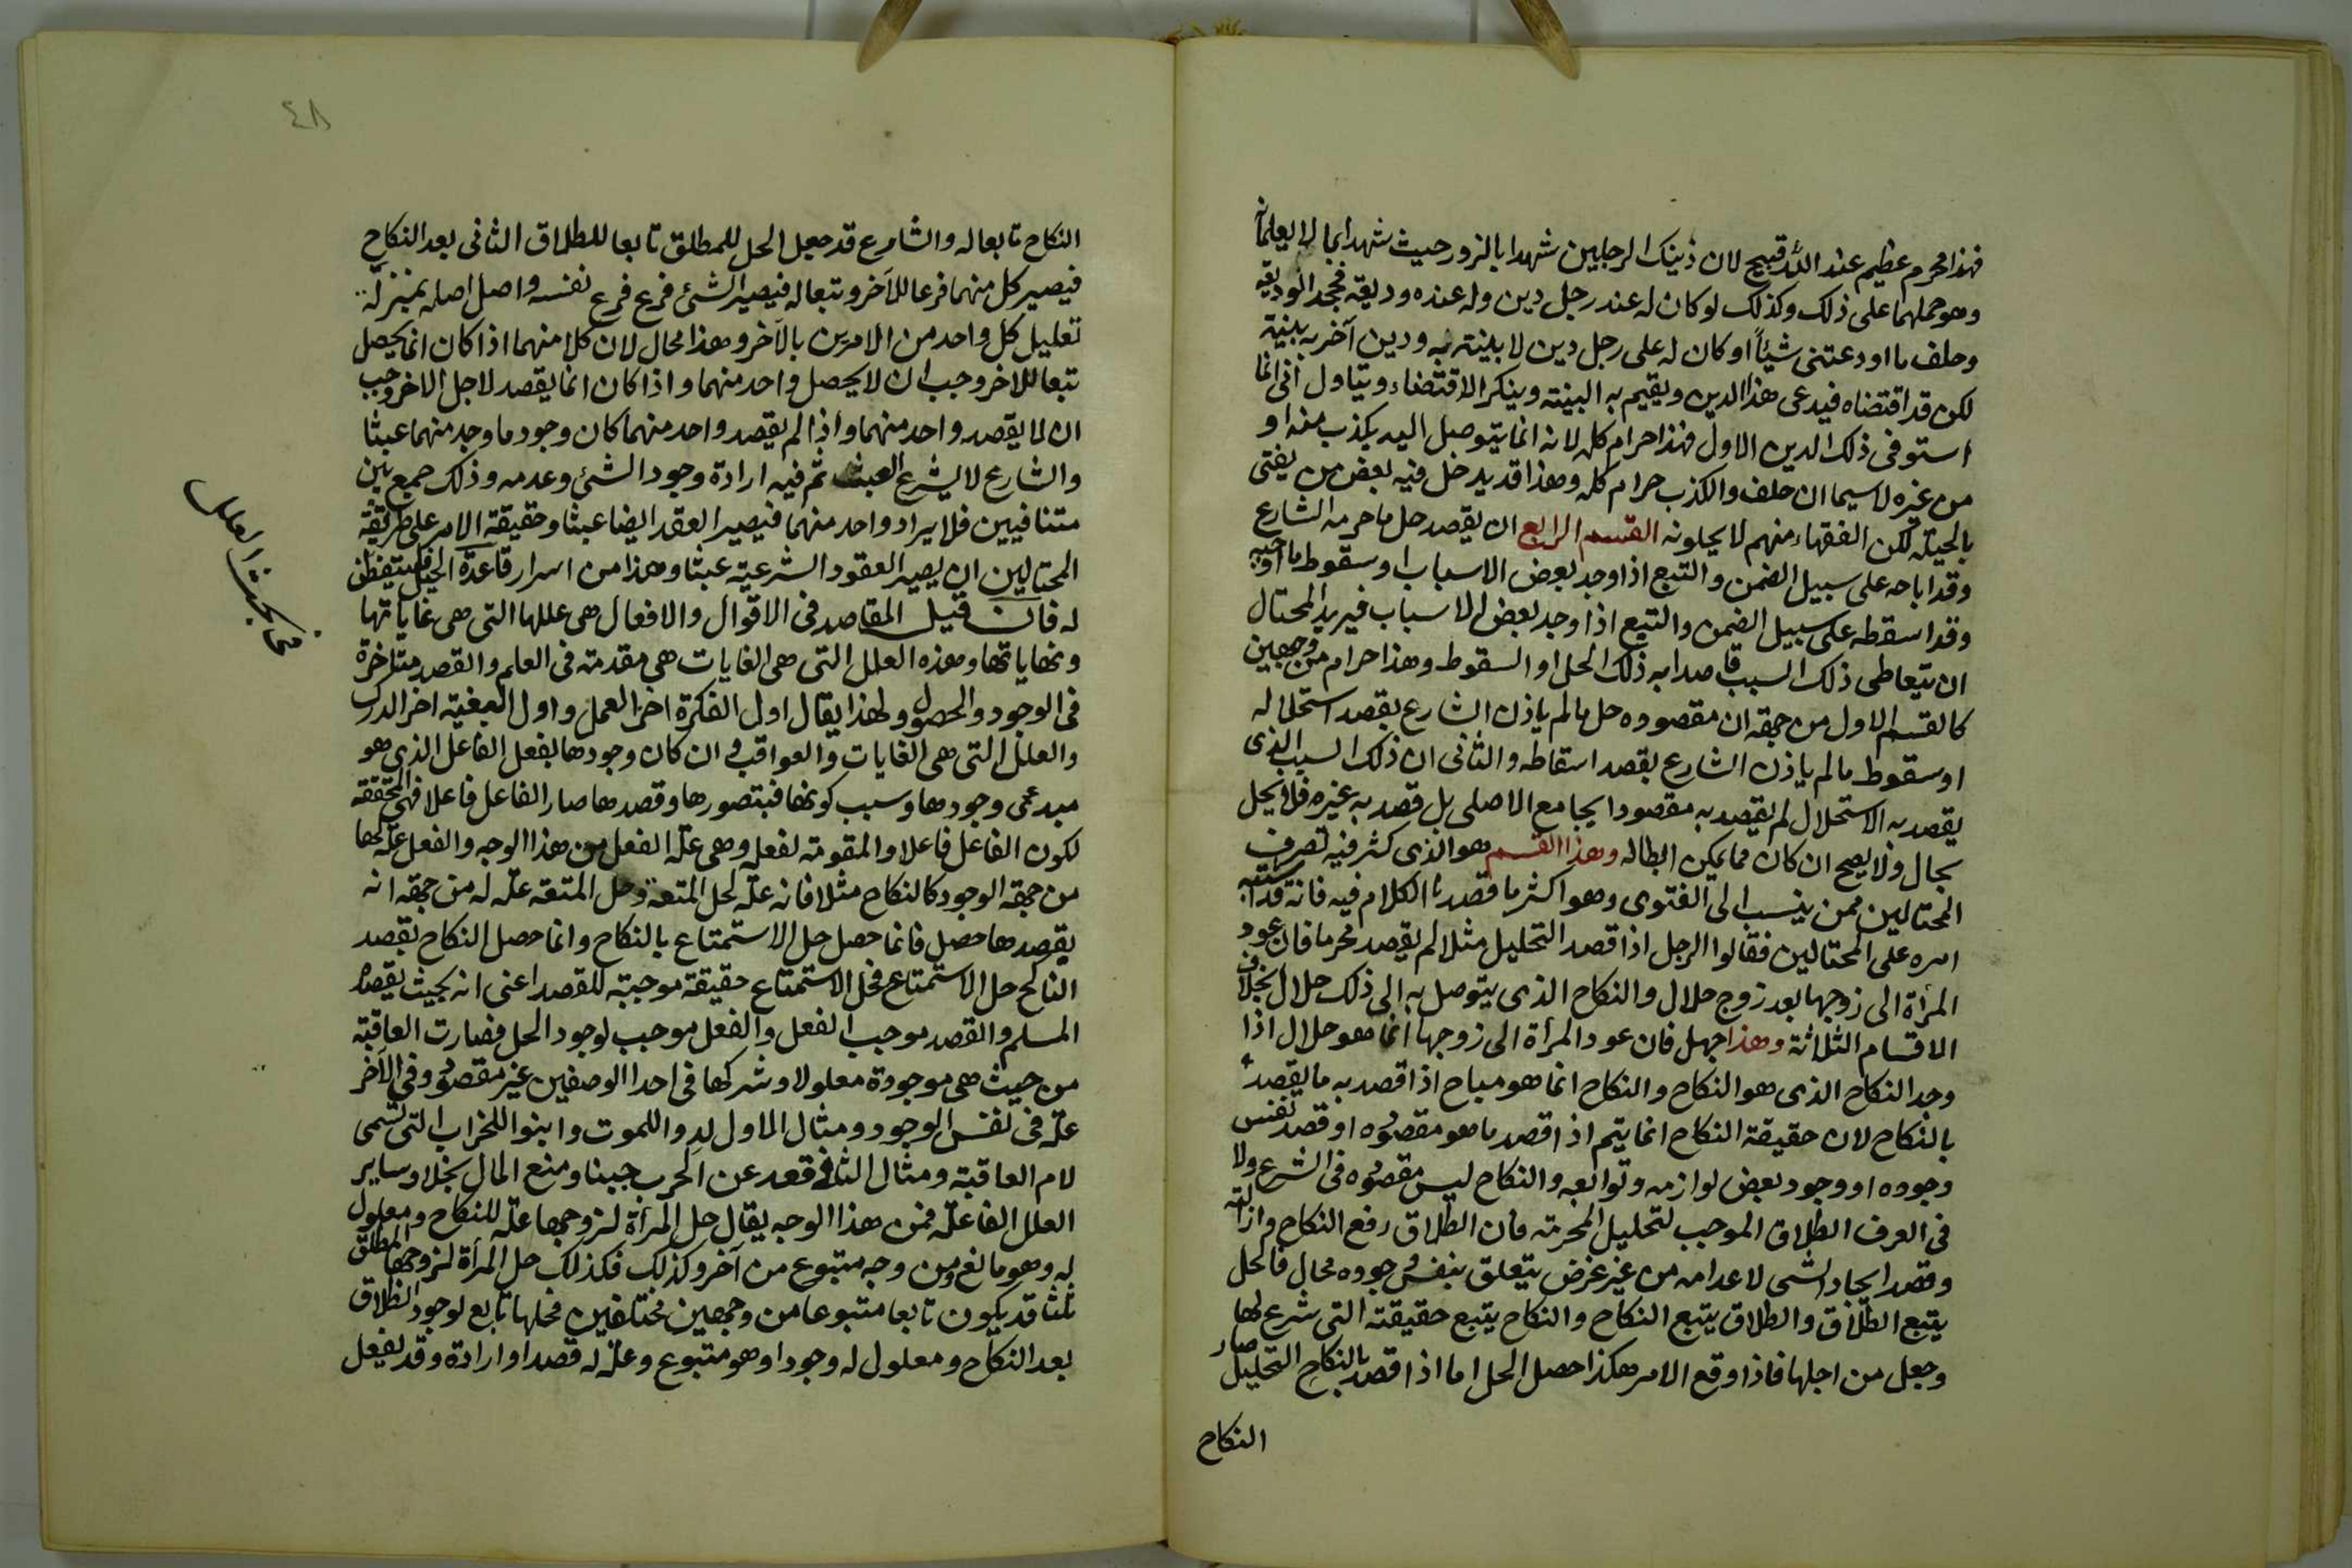 فهذا محرم عظيم عند الله قبيح لان ذينك الرجلين شهدا بالزور حيث شهدا بما لا يعلمانه
وهو حملهما على ذلك وكذلك لو كان له عند رجل دين وله عنده وديعة فجحد الوديعة
وحلف ما اودعتني شيئاً او كان له على رجل دين لا بينة به ودين آخر به بينة
لكن قد اقتضاه فيدعى هذا الدين ويقيم به البينة وينكر الاقتضاء ويتاول انى انما
استوفى ذلك الدين الاول فهذا حرام كله لانه انما يتوصل اليه بكذب منه او
من غيره لاسيما ان حلف والكذب حرام كله وهذا قد يدخل فيه بعض من يفتى
بالحيلة لكن الفقهاء منهم لا يحلونه القسم الرابع ان يقصد حل ما حرمه الشارع
وقد اباحه على سبيل الضمن والتبع اذا وجد بعض الاسباب او سقوط ما اوجبه
وقد اسقطه على سبيل الضمن والتبع اذا وجد بعض الاسباب فيريد المحتال
ان يتعاطى ذلك السبب قاصدا به ذلك الحل او السقوط وهذا حرام من وجهين
كالقسم الاول من جهة ان مقصوده حل ما لم ياذن الشارع بقصد استحلاله
او سقوط ما لم ياذن الشارع بقصد اسقاطه والثانى ان ذلك السبب الذى
يقصد به الاستحلال لم يقصد به مقصودا يجامع الاصلى بل قصد به غيره فلا يحل
بحال ولا يصح ان كان مما يمكن ابطاله وهذا القسم هو الذى كثر فيه تصرف
المحتالين ممن ينسب الى الفتوى وهو اكثر ما قصدنا الكلام فيه فانه قد اشتبه
امره على المحتالين فقالوا الرجل اذا قصد التحليل مثلا لم يقصد محرما فان عود
المرأة الى زوجها بعد زوج حلال والنكاح الذى يتوصل به الى ذلك حلال بخلاف
الاقسام الثلاثة وهذا جهل فان عود المرأة الى زوجها انما هو حلال اذا
وجد النكاح الذى هو النكاح والنكاح انما هو مباح اذا قصد به ما يقصد
بالنكاح لان حقيقة النكاح انما يتم اذا قصد ما هو مقصوده او قصد نفس
وجوده او وجود بعض لوازمه وتوابعه والنكاح ليس مقصوده فى الشرع ولا
فى العرف الطلاق الموجب لتحليل المحرمة فان الطلاق رفع النكاح وازالته
وقصد ايجاد الشى لاعدامه من غير غرض يتعلق بنفس وجوده محال فالحل
يتبع الطلاق والطلاق يتبع النكاح والنكاح يتبع حقيقته التى شرع لها
وجعل من اجلها فاذا وقع الامر هكذا حصل الحل اما اذا قصد بالنكاح التحليل صار
النكاح
٤٨
النكاح تابعا له والشارع قد جعل الحل للمطلق تابعا للطلاق الثانى بعد النكاح
فيصير كل منهما فرعا للآخر وتبعا له فيصير الشئ فرع فرع نفسه واصل اصله بمنزلة
تعليل كل واحد من الامرين بالآخر وهذا محال لان كلا منهما اذا كان انما يحصل
تبعا للاخر وجب ان لا يحصل واحد منهما واذا كان انما يقصد لاجل الاخر وجب
ان لا يقصد واحد منهما واذا لم يقصد واحد منهما كان وجود ما وجد منهما عبثا
والشارع لا يشرع العبث ثم فيه ارادة وجود الشئ وعدمه وذلك جمع بين
متنافيين فلا يراد واحد منهما فيصير العقد ايضا عبثا وحقيقة الامر على طريقة
المحتالين ان يصير العقود الشرعية عبثا وهذا من اسرار قاعدة الحيل فليتفطن
له فان قيل المقاصد فى الاقوال والافعال هى عللها التى هى غاياتها
ونهاياتها وهذه العلل التى هى الغايات هى مقدمة فى العلم والقصد متاخرة
فى الوجود والحصول ولهذا يقال اول الفكرة اخر العمل واول البغية اخر الدرك
والعلل التى هى الغايات والعواقب وان كان وجودها بفعل الفاعل الذى هو
مبدئى وجودها وسبب كونها فبتصورها وقصدها صار الفاعل فاعلا فهى المحققة
لكون الفاعل فاعلا والمقومة لفعله وهى علة الفعل من هذا الوجه والفعل علة لها
من جهة الوجود كالنكاح مثلا فانه علة لحل المتعة وحل المتعة علة له من جهة انه
يقصدها حصل فانما حصل حل الاستمتاع بالنكاح وانما حصل النكاح بقصد
الناكح حل الاستمتاع فحل الاستمتاع حقيقة موجبة للقصد اعنى انه بحيث يقصده
المسلم والقصد موجب الفعل والفعل موجب لوجود الحل فصارت العاقبة
من حيث هى موجودة معلولا وشركها فى احد الوصفين غير مقصود وفى الآخر
علة فى نفس الوجود ومثال الاول لدوا للموت وابنوا للخراب التى تسمى
لام العاقبة ومثال الثانى قعد عن الحرب جبنا ومنع المال بخلا وساير
العلل الفاعلة فمن هذا الوجه يقال حل المرأة لزوجها علة للنكاح ومعلول
له وهو مانع ومن وجه متبوع من آخر وكذلك فكذلك حل المرأة لزوجها المطلق
ثلثا قد يكون تابعا متبوعا من وجهين مختلفين فحلها تابع لوجود الطلاق
بعد النكاح ومعلول له وجودا وهو متبوع وعلة له قصدا وارادة وقد يفعل
مبحث العلل